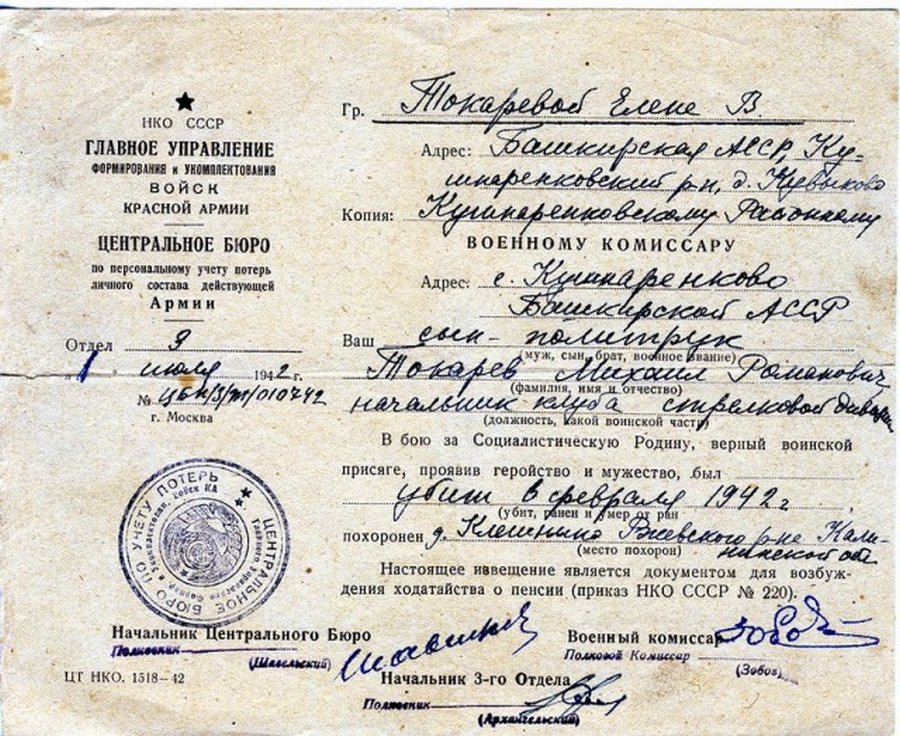 НКО СССР
ГЛАВНОЕ УПРАВЛЕНИЕ
ФОРМИРОВАНИЯ и УКОМПЛЕКТОВАНИЯ
ВОЙСК
КРАСНОЙ АРМИИ
ЦЕНТРАЛЬНОЕ БЮРО
по персональному учету потерь
личного состава действующей
Армии
Отдел 3
1 июля 1942 г.
№
г. Москва
Гр. Токаревой Елене В.
Адрес: Башкирская АССР, Ку-
шнаренковский р-н, д. Кувыково
Копия: Кушнаренковскому Районному
ВОЕННОМУ КОМИССАРУ
Адрес: с. Кушнаренково
Башкирской АССР
Ваш сын - политрук
(муж, сын, брат, военное звание)
Токарев Михаил Романович
(фамилия, имя и отчество)
начальник клуба стрелковой дивизии
(должность, какой воинской части)
В бою за Социалистическую Родину, верный воинской
присяге, проявив геройство и мужество, был
убит в феврале 1942 г
(убит, ранен и умер от ран
похоронен д. Клешнино Ржевского р-на Кали-
нинской обл
(место похорон)
Настоящее извещение является документом для возбуж-
дения ходатайства о пенсии (приказ НКО СССР № 220).
ЦЕНТРАЛЬНОЕ БЮРО ПО УЧЕТУ ПОТЕРЬ
Начальник Центрального Бюро
Полковник
(Шавельский)
Военный комиссар
Полковой Комиссар
(Зобов)
Начальник 3-го Отдела
Полковник
(Архангельский)
ЦТ НКО. 1518—42